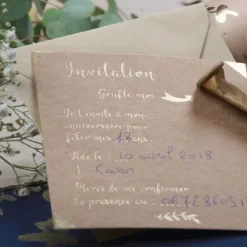 Invitation
Gonfle moi
Je t'invite à mon
anniversaire pour
fêter mes 18 ans.
Rdv le : 10 avril 2018
à Caen
Merci de me confirmer
ta présence au :